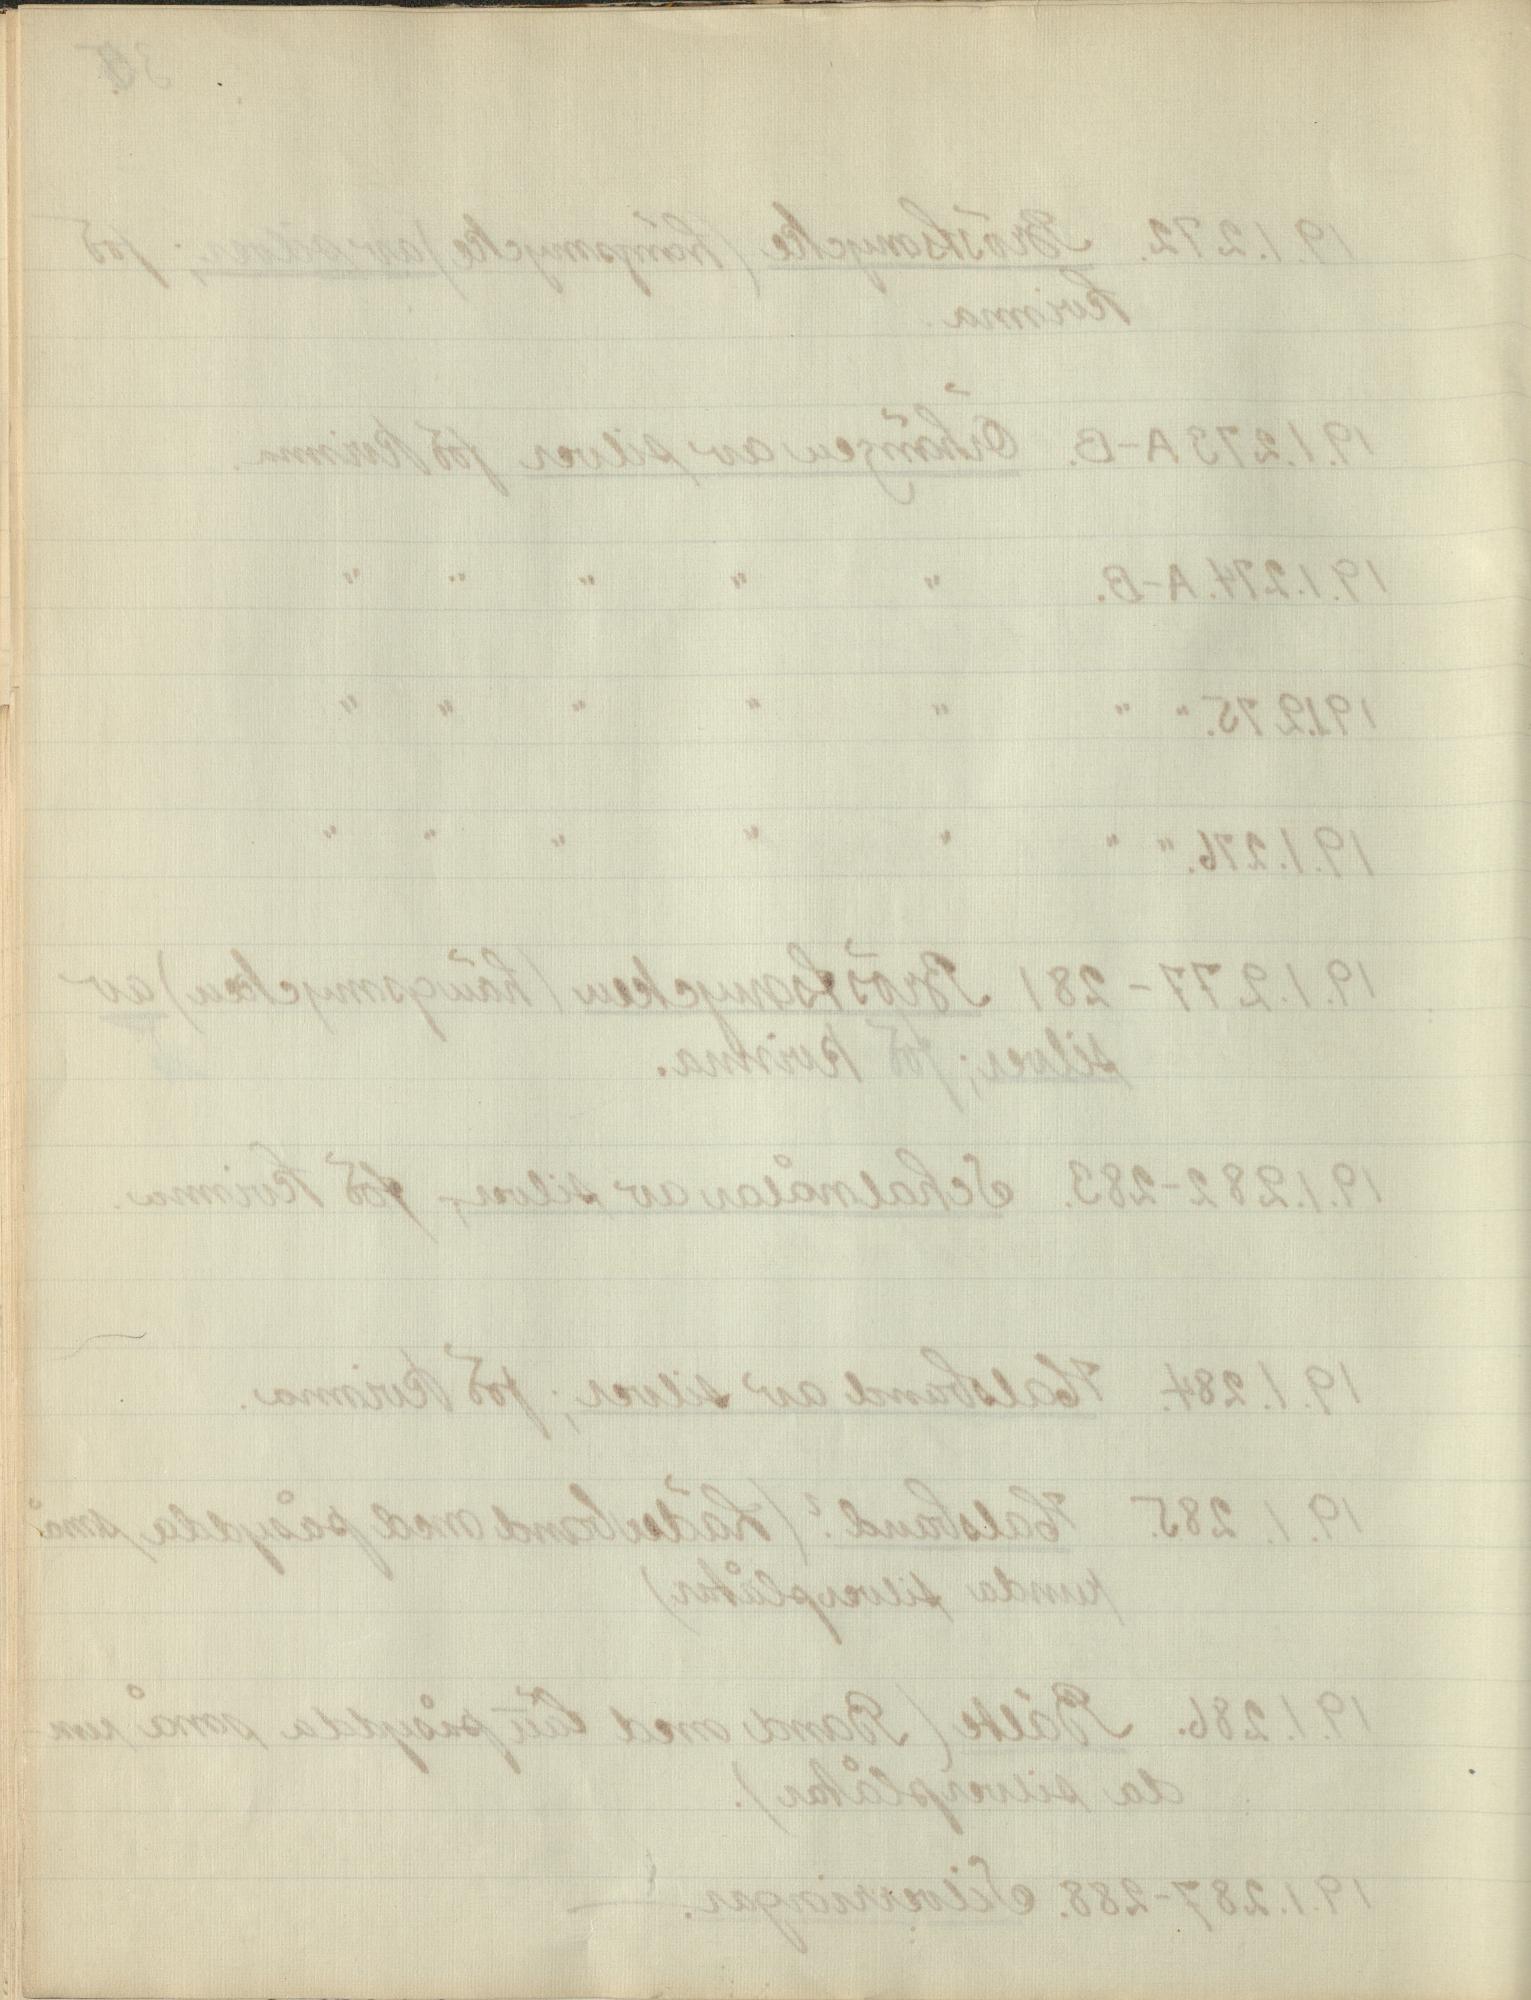 19.1.272. Bröstsmycke (hängsmycke) av silver; för
kvinna.
19.1.273 A-B. Örhängen av silver för kvinna.
19.1.274. A-B. " " " " "
19.1.275. " " " " " " "
19.1.276. " " " " " " "
19.1.277-281 Bröstsmycken (hängsmycken) av
silver; för kvinna.
19.1.282-283. Schalnålar av silver, för kvinna.
19.1.284. Halsband av silver; för kvinna.
19.1.285. Halsband? (Läderband med påsydda små
runda silverplåtar)
19.1.286. Bälte (Band med tätt påsydda små run-
da silverplåtar).
19.1.287-288. Silverringar.